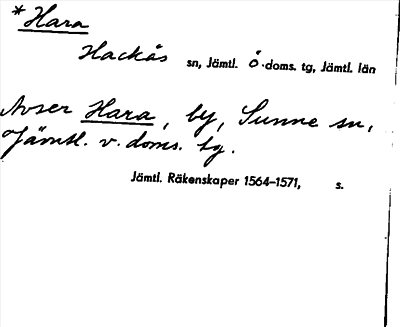 * Hara
Hackås sn, Jämtl. Ö.doms. tg, Jämtl. län
Avser Hara, by, Sunne sn,
Jämtl. v. doms. tg.
Jämtl. Räkenskaper 1564–1571, s.